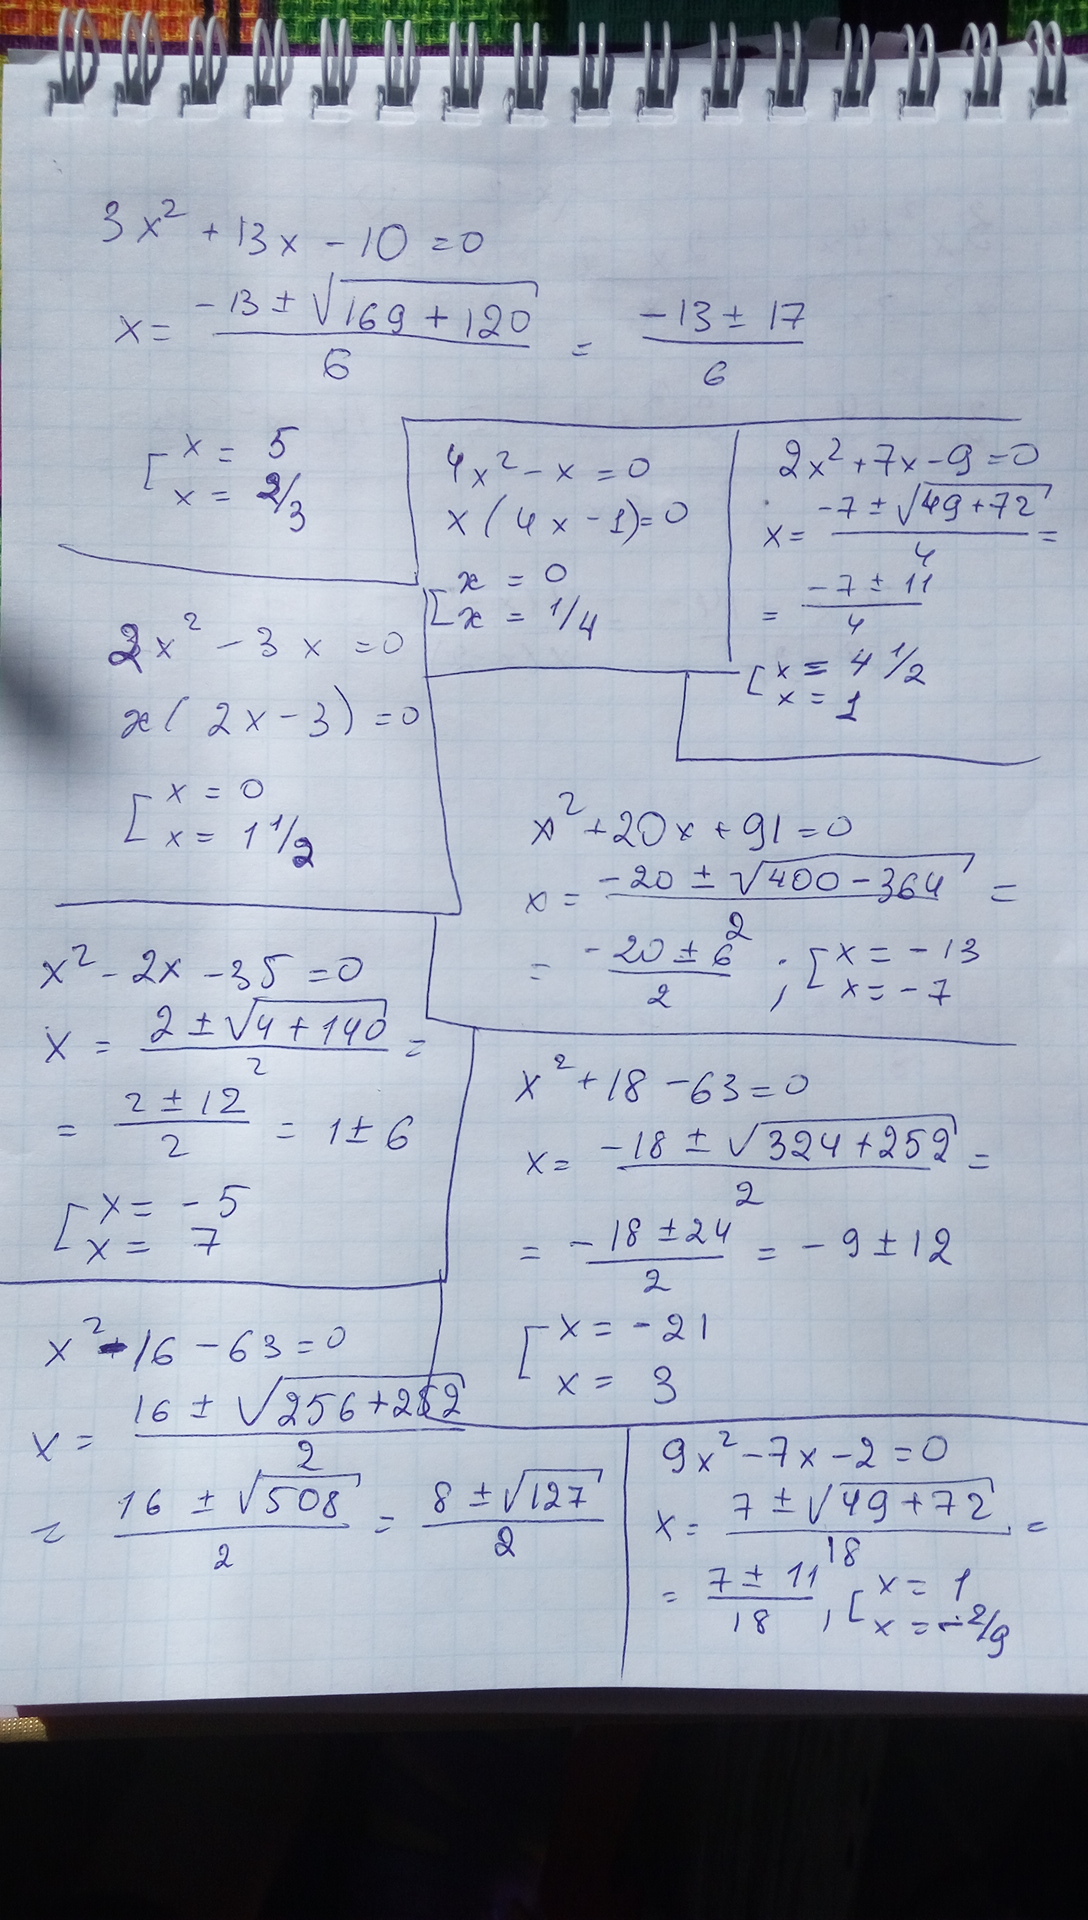 3x² + 13x - 10 = 0
x = (-13 ± √(169 + 120))/6 = (-13 ± 17)/6
[ x = 5
x = 2/3
4x² - x = 0
x(4x - 1) = 0
[ x = 0
x = 1/4
2x² + 7x - 9 = 0
x = (-7 ± √(49 + 72))/4 =
= (-7 ± 11)/4
[ x = 4 1/2
x = 1
2x² - 3x = 0
x(2x - 3) = 0
[ x = 0
x = 1 1/2
x² + 20x + 91 = 0
x = (-20 ± √(400 - 364))/2 =
= (-20 ± 6)/2 ; [ x = -13
x = -7
x² - 2x - 35 = 0
x = (2 ± √(4 + 140))/2 =
= (2 ± 12)/2 = 1 ± 6
[ x = -5
x = 7
x² + 18 - 63 = 0
x = (-18 ± √(324 + 252))/2 =
= (-18 ± 24)/2 = -9 ± 12
[ x = -21
x = 3
x² - 16 - 63 = 0
x = (16 ± √(256 + 252))/2
= (16 ± √508)/2 = (8 ± √127)/2
9x² - 7x - 2 = 0
x = (7 ± √(49 + 72))/18 =
= (7 ± 11)/18 , [ x = 1
x = -2/9